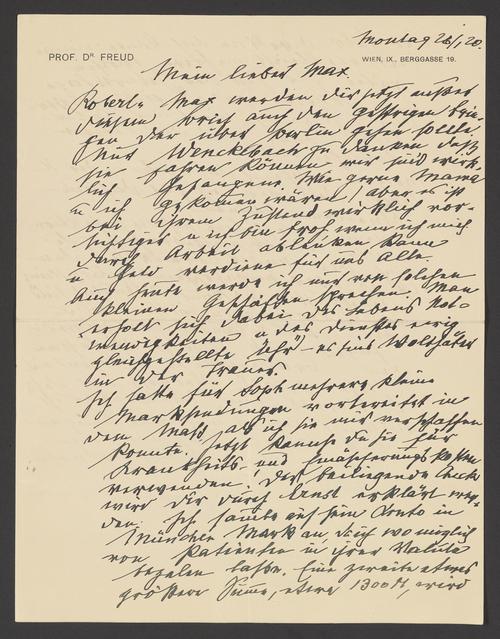 PROF. DR FREUD
Montag 26/1 20.
WIEN, IX., BERGGASSE 19.
Mein lieber Max
Robert u Max werden dir jetzt außer
diesem Brief auch den gestrigen brin-
gen der über Berlin gehen sollte
Nur Wenckebach zu danken daß
sie fahren können wir sind wirk-
lich Gefangene. Wie gerne Mama
u ich gekommen wären, aber es ist
bei ihrem Zustand wirklich vor-
sichtiger u ich bin froh wenn ich mich
durch Arbeit ablenken kann
u Geld verdiene für uns Alle.
Auch heute werde ich nur von solchen
kleinen Geschäften sprechen. Man
erholt sich dabei des Lebens Not-
wendigkeiten u des Dienstes ewig
gleichgestellte Uhr - es sind Wohltäter
in der Trauer.
Ich hatte für Soph mehrere kleine
Marksendungen vorbereitet in
dem Maß als ich sie mir verschaffen
konnte. Jetzt kannst du sie für
Krankheits- und Einäscherungskosten
verwenden. Der beiliegende
wird Dir durch Ernst erklärt wer-
den. Ich sammle auf sein Conto in
München Mark an, die ich womöglich
von Patienten in ihrer Valuta
bezalen laße. Eine zweite etwas
größere Summe, etwa 1300 M, wird